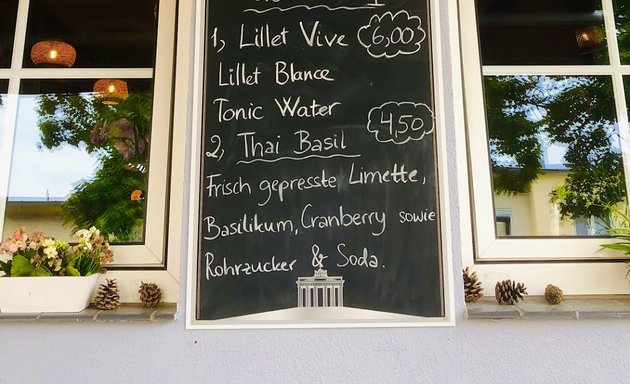 1, Lillet Vive 6,00
Lillet Blance
Tonic Water
2, Thai Basil 4,50
Frisch gepresste Limette,
Basilikum, Cranberry sowie
Rohrzucker & Soda.